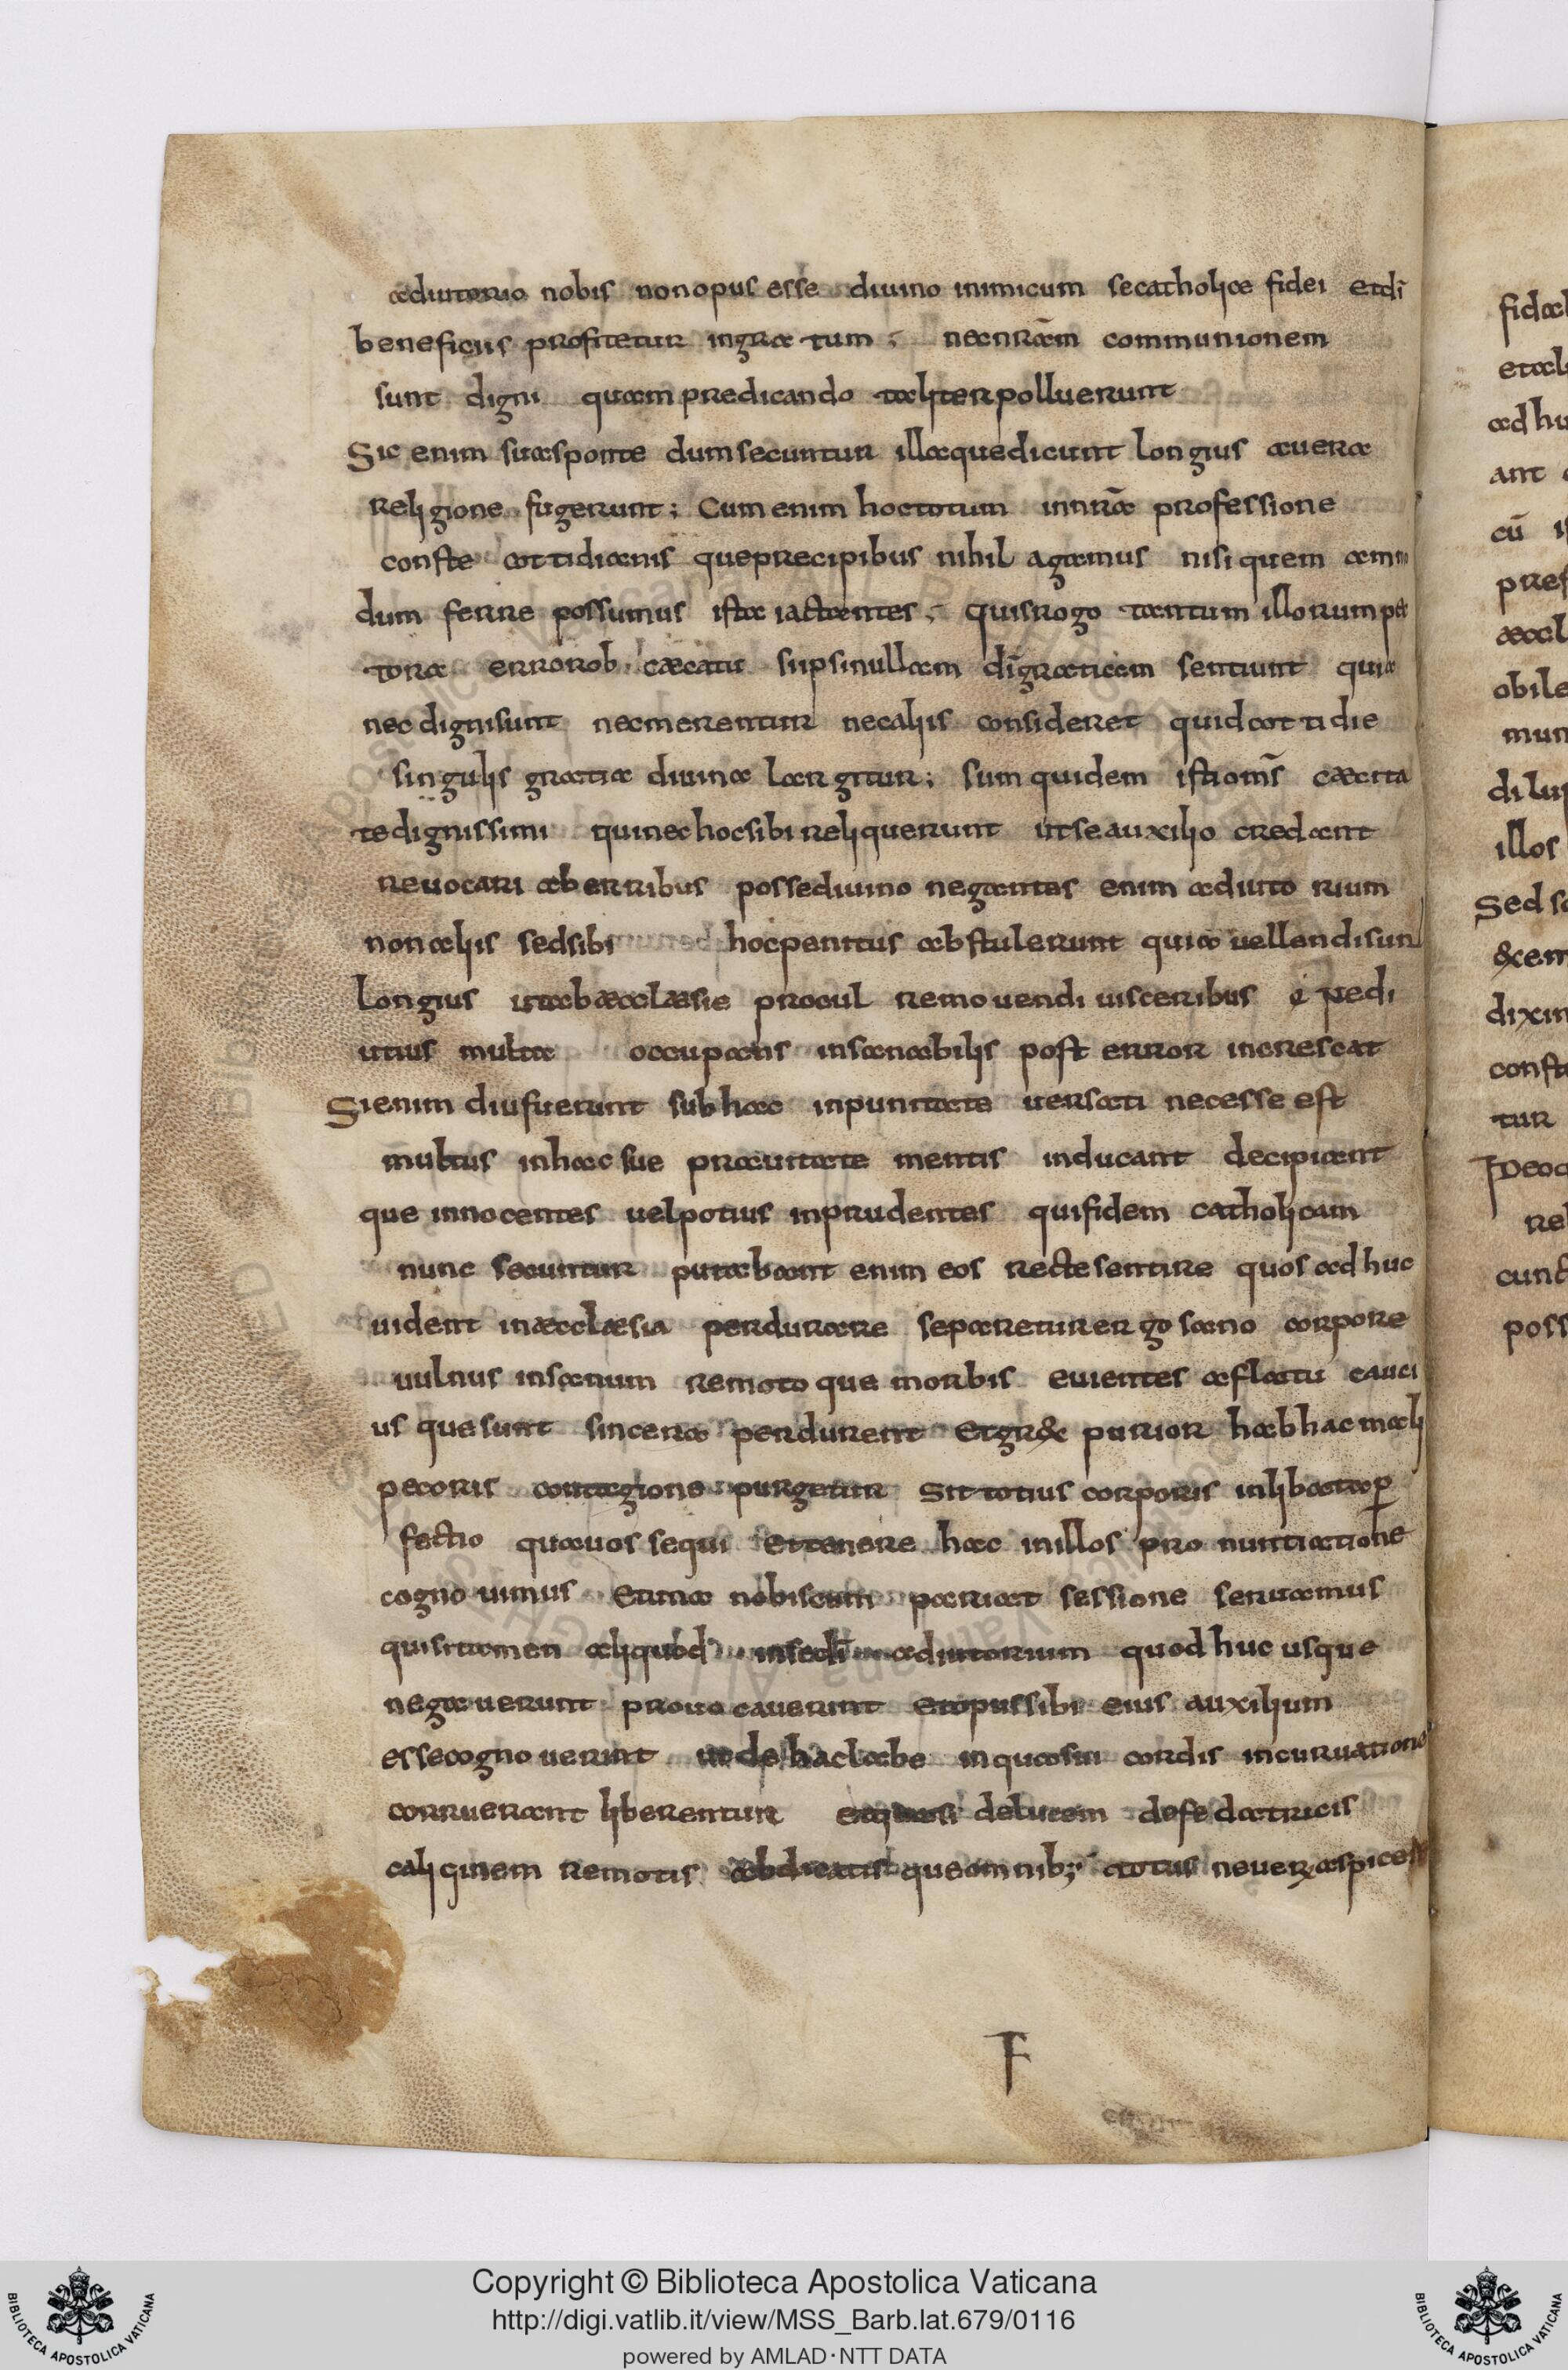 adiutorio nobis non opus esse diuino inimicum se catholice fidei et dī
beneficiis profitetur ingratum ; nec nrām communionem
sunt digni quam predicando taliter polluerunt
Sic enim sua sponte dum secuntur illa que dicunt longius a uera
religione fugerunt ; Cum enim hoc totum in nrā professione
confte cottidianis que precipibus nihil agamus nisi quem am
dum ferre possumus ista iactantes ; quis rogo tantum illorum pec
tora error ob cæcatis si ipsi nullam dī gratiam sentiunt quia
nec digni sunt nec merentur nec aliis consideret quid cottidie
singulis gratia diuina largitur ; sum quidem isti omīs cæcita
te dignissimi qui nec hoc sibi reliquerunt ut se auxilio credant
reuocari ab erribus posse diuino negantes enim adiuto rium
non aliis sed sibi hoc penitus abstulerunt quia uellendi sun
longius ut ab æcclæsie procul remouendi uisceribus pedi
utius multa occupans insanabilis post error increscat
Si enim diu fuerunt sub hac inpunitate uersati necesse est
multus in hac sue prauitate mentis inducant decipiant
que innocentes uel potius inprudentes qui fidem catholicam
nunc secuntur putabant enim eos recte sentire quos adhuc
uident in æcclæsia perdurare separetur ergo sano corpore
uulnus insanum remoto que morbis euientes aflatu cauci
us que sunt sincera perdurent Et gr&x purior hab hac mali
pecoris contagione purgetur Sit totius corporis inlibata p̱
fectio qua uos sequi et tenere hac in illos pronuntiatione
cognouimus Et una nobiscum pariat sessione seruamus
qui si tamen aliquod in se dī adiutorium quod huc usque
negauerunt prouocauerint et opus sibi eius auxilium
esse cognouerint ut de hac labe in qua sui cordis incuruatione
corruerant liberentur de lucem defe datricis
caliginem remotis abdicatis que omnib; totus ne uer aspicest
F
fidæ
ædhu
cū
obile
mun
di lu
illos
Sed s
dixim
confta
tur
re
cunc
poss
Copyright © Biblioteca Apostolica Vaticana
http://digi.vatlib.it/view/MSS_Barb.lat.679/0116
powered by AMLAD·NTT DATA
BIBLIOTECA APOSTOLICA VATICANA
BIBLIOTECA APOSTOLICA VATICANA